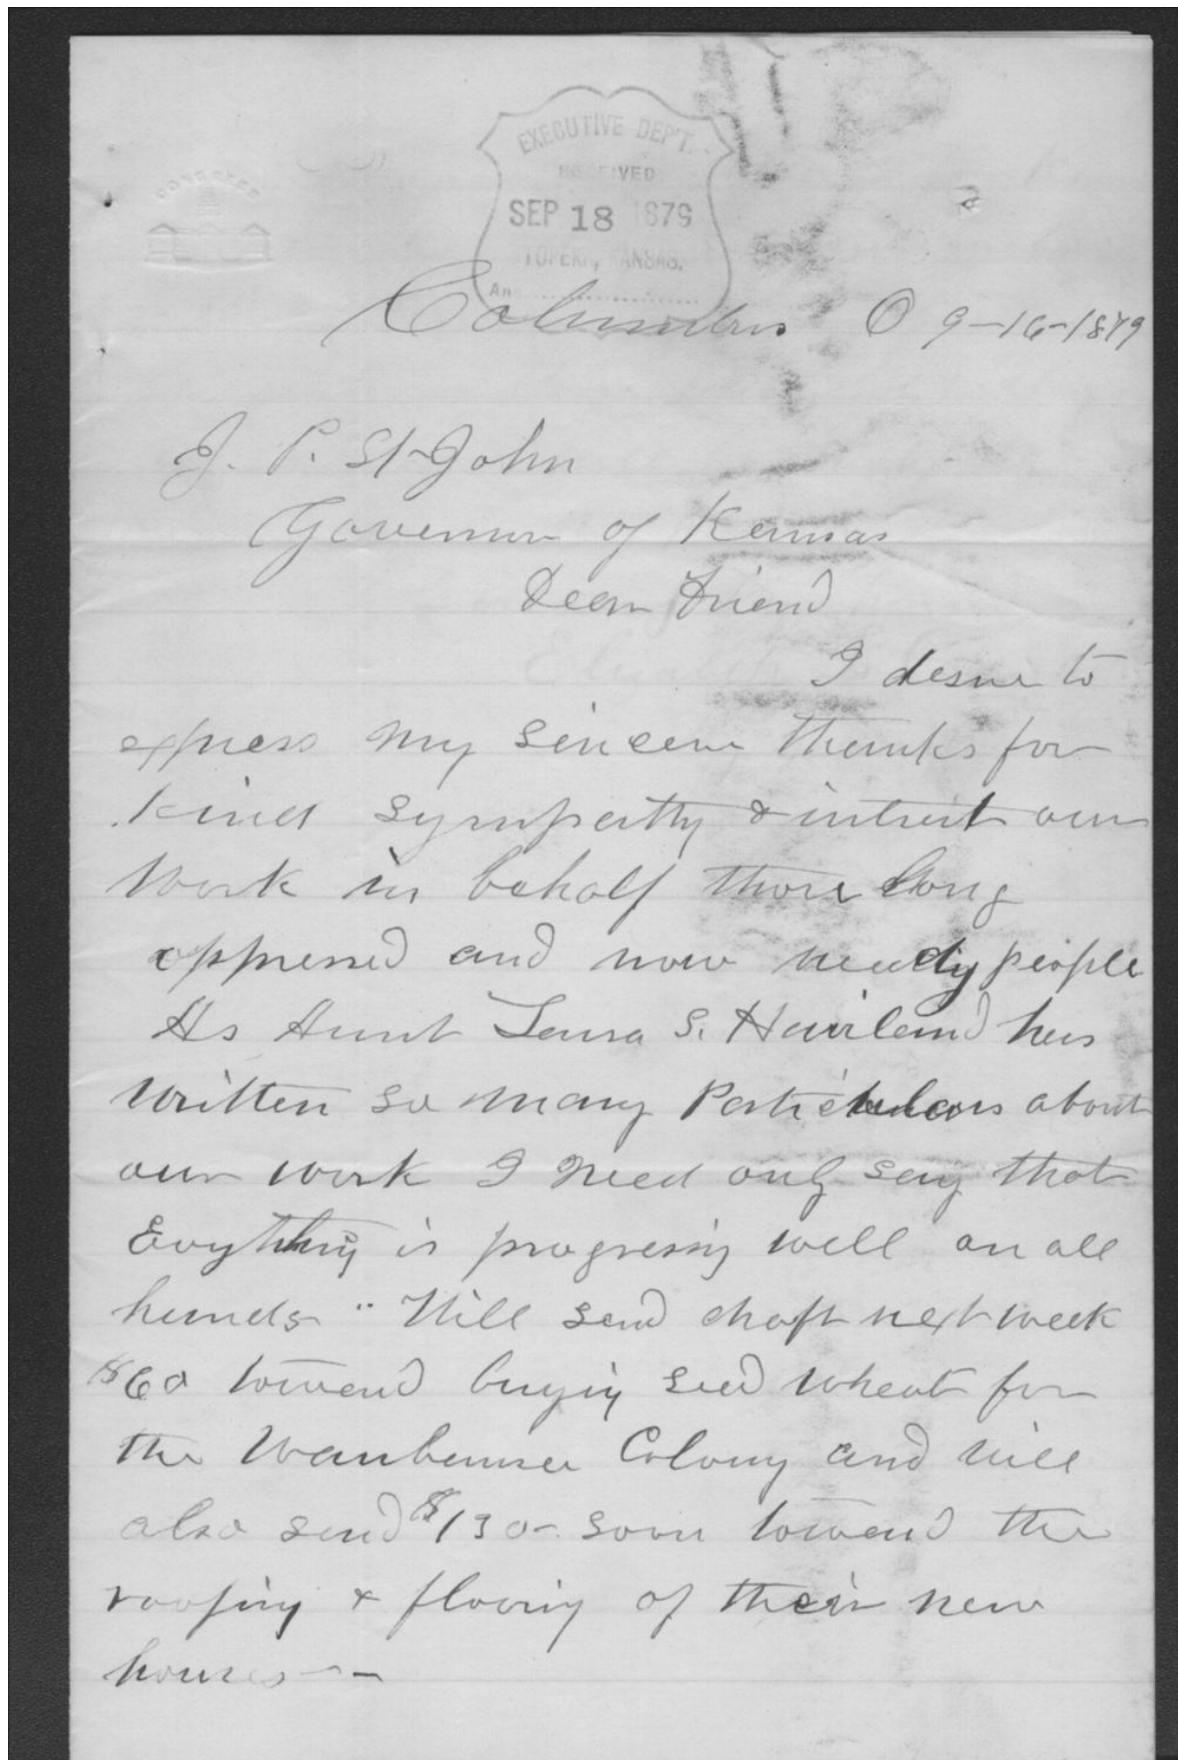 CONGRESS
EXECUTIVE DEP'T.
RECEIVED
SEP 18 1879
TOPEKA, KANSAS.
An
Columbus O 9-16-1879
J. P. St John
Governor of Kansas
Dear Friend
I desire to
express my sincere thanks for
kind sympathy & intrest our
work in behalf those long
oppressed and now needy people
As Aunt Laura S. Haviland has
written so many Particulars about
our work I need only say that
Evything is progressing well on all
hands " Will send draft next week
$60 toward buying seed wheat for
the Waubaunsee Colony and will
also send $130- soon toward the
roofing & flooring of their new
houses - -